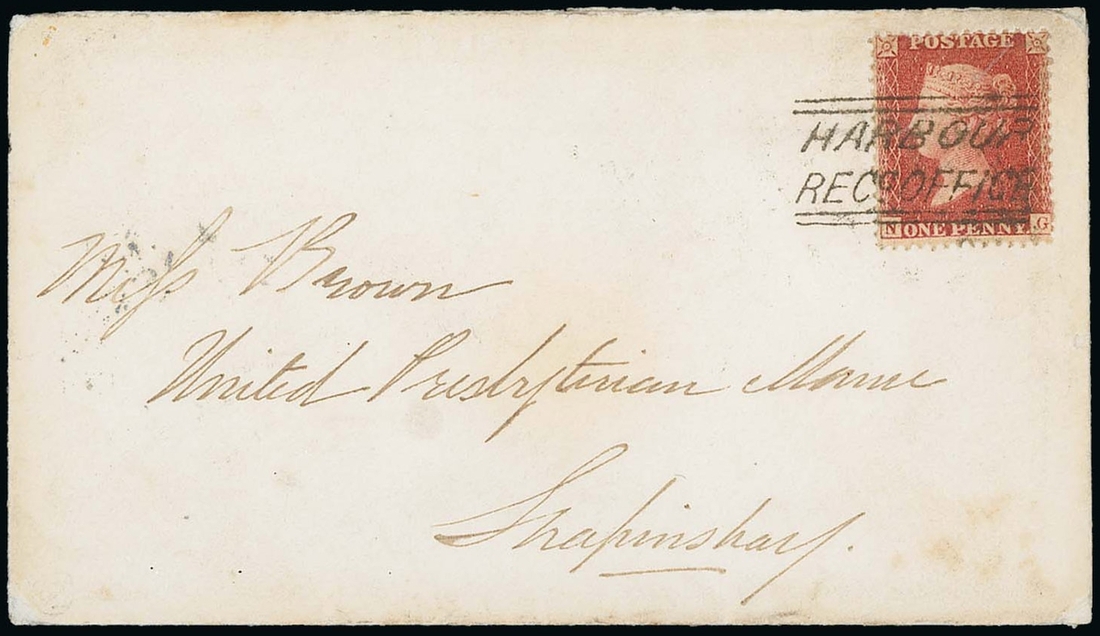 POSTAGE
HARBOUR
RECG OFFICE
N ONE PENNY G
Miss Brown
United Presbyterian Manse
Shapinshay.